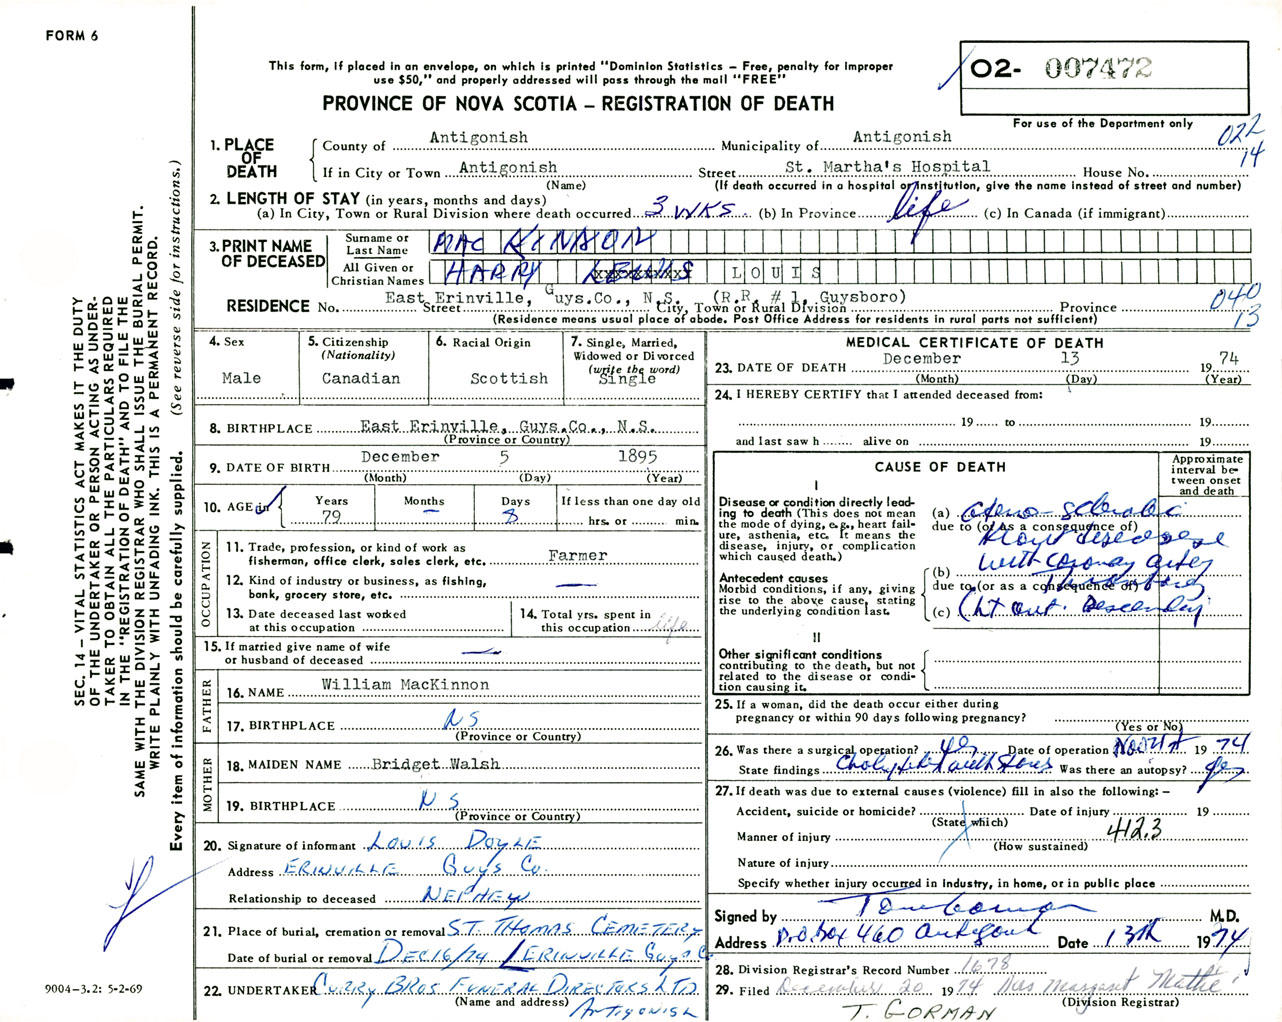 FORM 6
This form, if placed in an envelope, on which is printed "Dominion Statistics – Free, penalty for improper
use $50," and properly addressed will pass through the mail "FREE"
PROVINCE OF NOVA SCOTIA – REGISTRATION OF DEATH
02- 007472
For use of the Department only
022
14
1. PLACE OF DEATH
County of Antigonish Municipality of Antigonish
If in City or Town Antigonish Street St. Martha's Hospital House No.
(Name) (If death occurred in a hospital or institution, give the name instead of street and number)
2. LENGTH OF STAY (in years, months and days)
(a) In City, Town or Rural Division where death occurred 3 WKS. (b) In Province life (c) In Canada (if immigrant)
3. PRINT NAME OF DECEASED
Surname or Last Name MAC KINNON
All Given or Christian Names HARRY LOUIS
RESIDENCE No. Street City, Town or Rural Division Province
East Erinville, Guys.Co., N.S. (R.R. # 1, Guysboro)
(Residence means usual place of abode. Post Office Address for residents in rural parts not sufficient)
040
13
4. Sex
Male
5. Citizenship
(Nationality)
Canadian
6. Racial Origin
Scottish
7. Single, Married,
Widowed or Divorced
(write the word)
Single
8. BIRTHPLACE East Erinville, Guys.Co., N.S.
(Province or Country)
9. DATE OF BIRTH December 5 1895
(Month) (Day) (Year)
10. AGE in
Years 79
Months –
Days 8
If less than one day old
hrs. or min.
OCCUPATION
11. Trade, profession, or kind of work as
fisherman, office clerk, sales clerk, etc. Farmer
12. Kind of industry or business, as fishing,
bank, grocery store, etc. —
13. Date deceased last worked
at this occupation
14. Total yrs. spent in
this occupation life
15. If married give name of wife
or husband of deceased —
FATHER
16. NAME William MacKinnon
17. BIRTHPLACE NS
(Province or Country)
MOTHER
18. MAIDEN NAME Bridget Walsh
19. BIRTHPLACE NS
(Province or Country)
20. Signature of informant LOUIS DOYLE
Address ERINVILLE GUYS CO.
Relationship to deceased NEPHEW
21. Place of burial, cremation or removal ST. THOMAS CEMETERY
Date of burial or removal DEC 16/74 ERINVILLE GUYS C
22. UNDERTAKER CURRY BROS FUNERAL DIRECTORS LTD
(Name and address) ANTIGONISH
MEDICAL CERTIFICATE OF DEATH
23. DATE OF DEATH December 13 1974
(Month) (Day) (Year)
24. I HEREBY CERTIFY that I attended deceased from:
19 to 19
and last saw h alive on 19
CAUSE OF DEATH
Approximate
interval be-
tween onset
and death
I
Disease or condition directly lead-
ing to death (This does not mean
the mode of dying, e.g., heart fail-
ure, asthenia, etc. It means the
disease, injury, or complication
which caused death.)
(a) Atero-sclerotic
due to (or as a consequence of)
Heart disease
with coronary artery
Antecedent causes
Morbid conditions, if any, giving
rise to the above cause, stating
the underlying condition last.
(b)
due to (or as a consequence of)
Thrombosis
(c) (Lt ant. Descending
II
Other significant conditions
contributing to the death, but not
related to the disease or condi-
tion causing it.
25. If a woman, did the death occur either during
pregnancy or within 90 days following pregnancy?
(Yes or No)
26. Was there a surgical operation? yes Date of operation 1974
State findings with stones Was there an autopsy? yes
27. If death was due to external causes (violence) fill in also the following: –
Accident, suicide or homicide? Date of injury 19
(State which)
Manner of injury 412.3
(How sustained)
Nature of injury
Specify whether injury occurred in industry, in home, or in public place
Signed by Tom Gorman M.D.
Address P.O. Box 460 Antigonish Date 13th 1974
28. Division Registrar's Record Number 1678
29. Filed December 20 1974 Mrs Margaret Mathie
(Division Registrar)
T. GORMAN
SEC. 14 – VITAL STATISTICS ACT MAKES IT THE DUTY
OF THE UNDERTAKER OR PERSON ACTING AS UNDER-
TAKER TO OBTAIN ALL THE PARTICULARS REQUIRED
IN THE "REGISTRATION OF DEATH" AND TO FILE THE
SAME WITH THE DIVISION REGISTRAR WHO SHALL ISSUE THE BURIAL PERMIT.
WRITE PLAINLY WITH UNFADING INK. THIS IS A PERMANENT RECORD.
Every item of information should be carefully supplied. (See reverse side for instructions.)
9004-3.2: 5-2-69